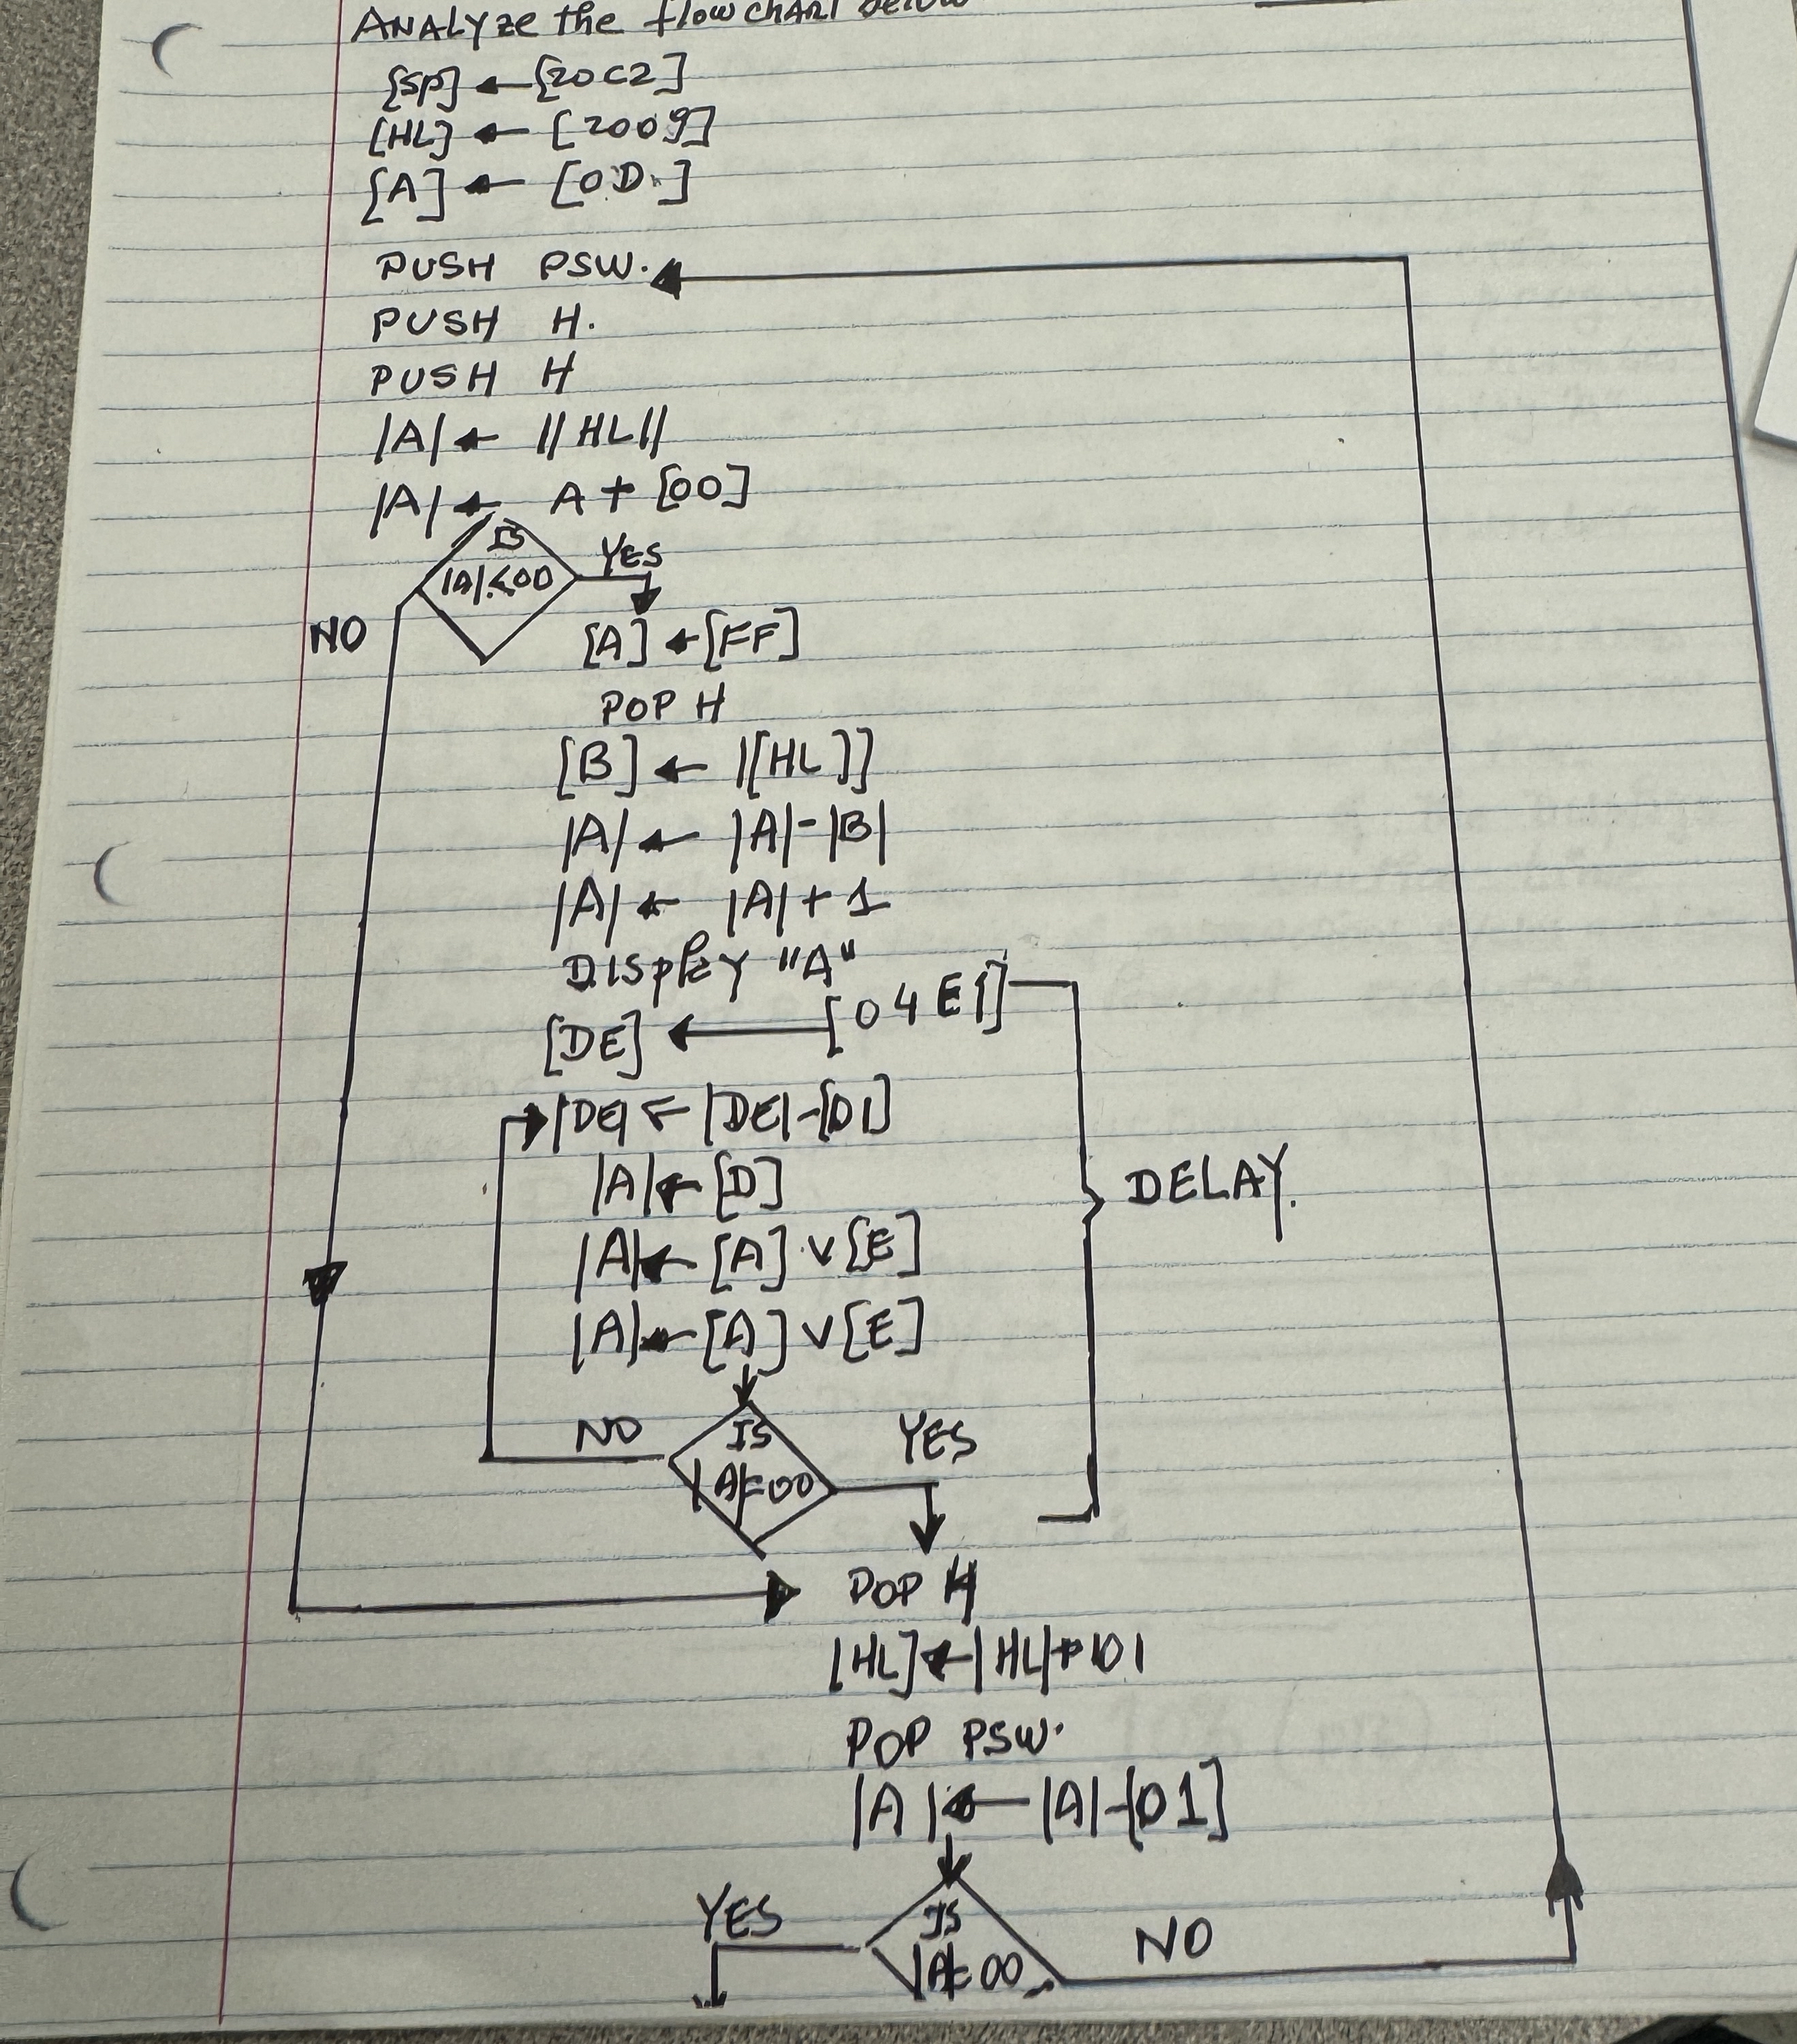 ANALYZE the flowchart below
[SP] ← [20C2]
[HL] ← [2009]
[A] ← [0D.]
PUSH PSW.
PUSH H.
PUSH H
|A| ← ||HL||
|A| ← A + [00]
IS
|A|<00
YES
NO
[A] ← [FF]
POP H
[B] ← |[HL]]
|A| ← |A|-|B|
|A| ← |A|+1
DISPLAY "A"
[DE] ← [04E1]
|DE| ← |DE|-[01]
|A| ← [D]
DELAY.
|A| ← [A] V [E]
|A| ← [A] V [E]
NO
IS
|A|=00
YES
POP H
[HL] ← |HL|+01
POP PSW.
|A| ← |A|-[01]
YES
IS
|A|=00
NO